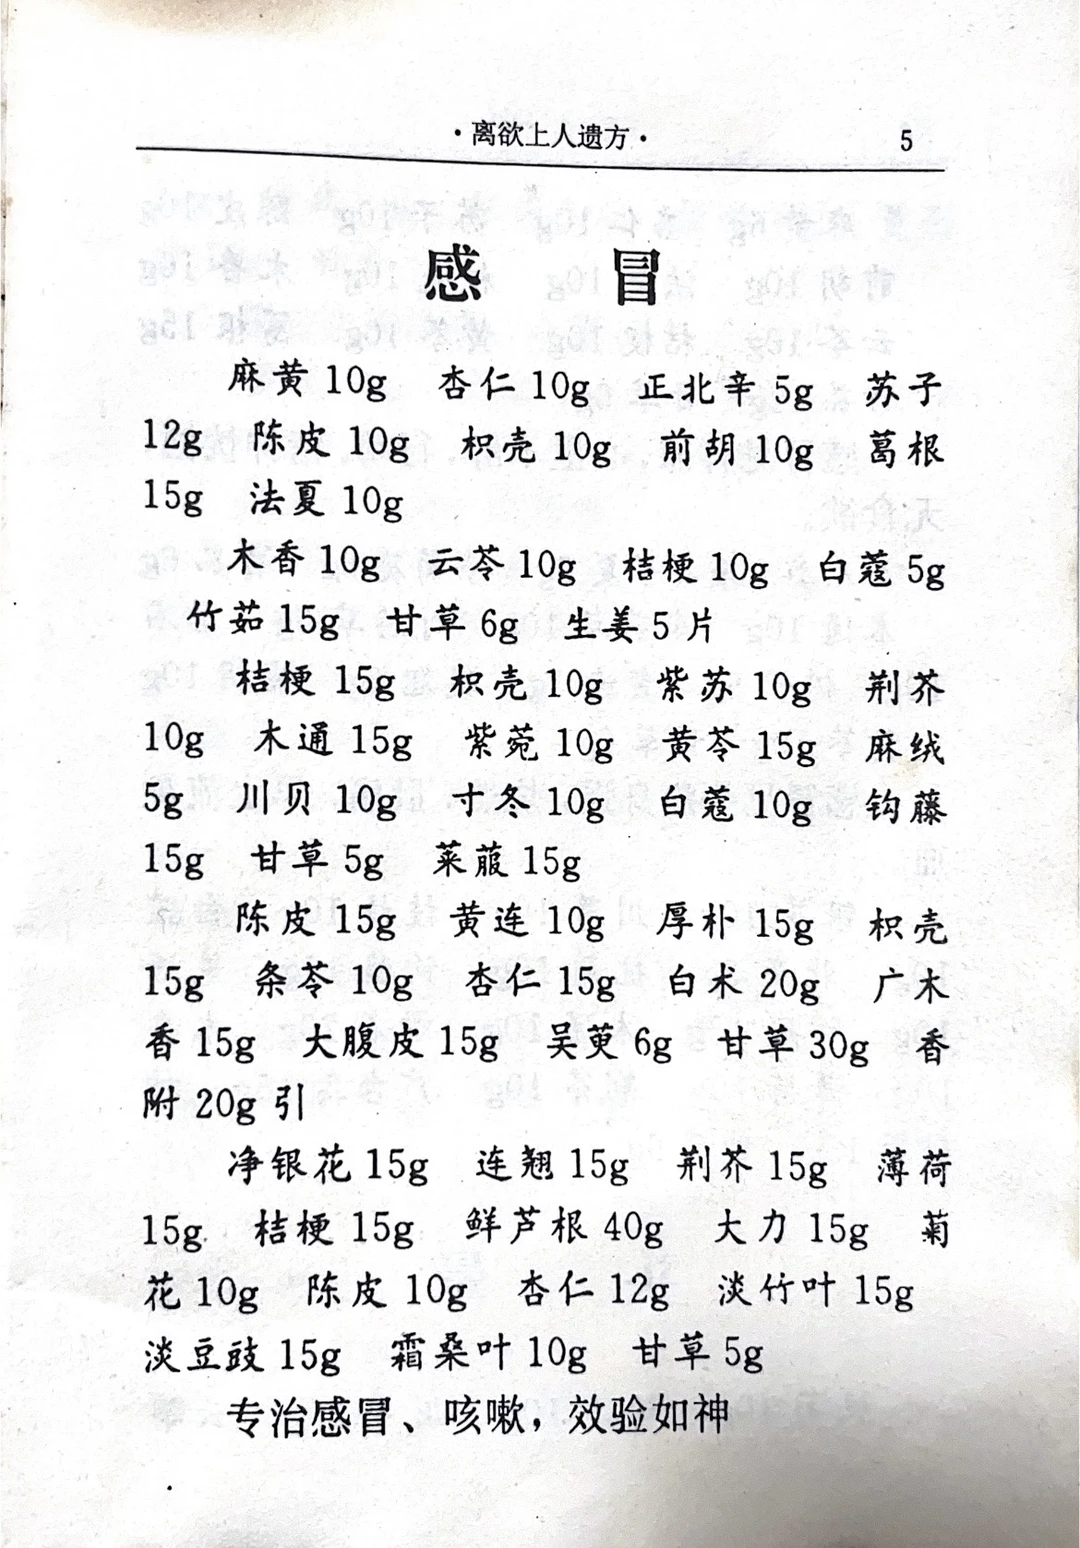 ·离欲上人遗方· 5
感 冒
麻黄10g 杏仁10g 正北辛5g 苏子
12g 陈皮10g 枳壳10g 前胡10g 葛根
15g 法夏10g
木香10g 云苓10g 桔梗10g 白蔻5g
竹茹15g 甘草6g 生姜5片
桔梗15g 枳壳10g 紫苏10g 荆芥
10g 木通15g 紫菀10g 黄芩15g 麻绒
5g 川贝10g 寸冬10g 白蔻10g 钩藤
15g 甘草5g 莱菔15g
陈皮15g 黄连10g 厚朴15g 枳壳
15g 条苓10g 杏仁15g 白术20g 广木
香15g 大腹皮15g 吴萸6g 甘草30g 香
附20g引
净银花15g 连翘15g 荆芥15g 薄荷
15g 桔梗15g 鲜芦根40g 大力15g 菊
花10g 陈皮10g 杏仁12g 淡竹叶15g
淡豆豉15g 霜桑叶10g 甘草5g
专治感冒、咳嗽，效验如神